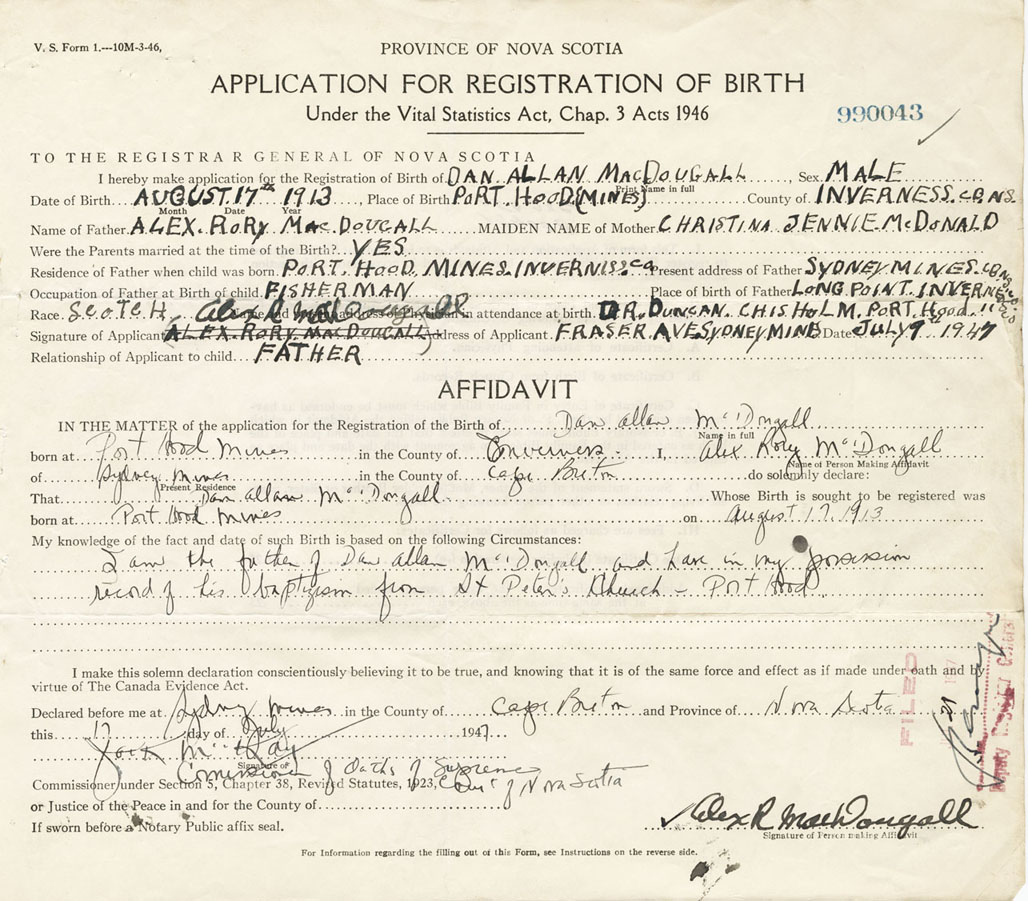 V. S. Form 1.---10M-3-46,
PROVINCE OF NOVA SCOTIA
APPLICATION FOR REGISTRATION OF BIRTH
Under the Vital Statistics Act, Chap. 3 Acts 1946
990043
TO THE REGISTRAR GENERAL OF NOVA SCOTIA
I hereby make application for the Registration of Birth of DAN ALLAN MACDOUGALL, Sex MALE
Print Name in full
Date of Birth AUGUST 17th 1913, Place of Birth PORT. HOOD (MINES) County of INVERNESS. CB NS.
Month Date Year
Name of Father ALEX. RORY MAC DOUGALL MAIDEN NAME of Mother CHRISTINA JENNIE McDONALD
Were the Parents married at the time of the Birth? YES
Residence of Father when child was born. PORT. HOOD. MINES. INVERNISS Co Present address of Father SYDNEY MINES. CB NS
Occupation of Father at Birth of child. FISHERMAN Place of birth of Father LONG POINT. INVERNESS
Race. SCOTCH Name and address of Physician in attendance at birth. DR. DUNCAN. CHISHOLM. PORT. HOOD.
Signature of Applicant ALEX. RORY MACDOUGALL Address of Applicant. FRASER AVE SYDNEY MINES Date JULY 9 1947
Relationship of Applicant to child FATHER
AFFIDAVIT
IN THE MATTER of the application for the Registration of the Birth of Dan Allan McDougall
Name in full
born at Port Hood Mines in the County of Inverness. I, Alex Rory McDougall
Name of Person Making Affidavit
of Sydney Mines in the County of Cape Breton do solemnly declare:
Present Residence
That Dan Allan McDougall Whose Birth is sought to be registered was
born at Port Hood Mines on August 17, 1913
My knowledge of the fact and date of such Birth is based on the following Circumstances:
I am the father of Dan Allan McDougall and have in my possession
record of his baptizism from St Peter's Church – Port Hood.
I make this solemn declaration conscientiously believing it to be true, and knowing that it is of the same force and effect as if made under oath and by
virtue of The Canada Evidence Act.
Declared before me at Sydney Mines in the County of Cape Breton and Province of Nova Scotia
this 17 day of July 1947
Jack McKay
Signature of
Commissioner of Oaths of Supreme
Commissioner under Section 5, Chapter 38, Revised Statutes, 1923, Court of Nova Scotia
or Justice of the Peace in and for the County of
If sworn before a Notary Public affix seal.
Alex R MacDougall
Signature of Person making Affidavit
For Information regarding the filling out of this Form, see Instructions on the reverse side.
FILED
Deputy Registrar General